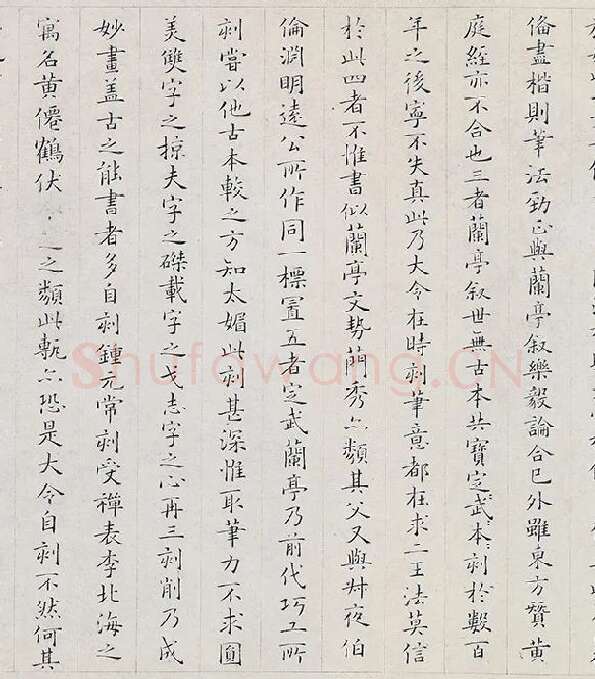 俻盡楷則筆法勁正與蘭亭叙樂毅論合已外雖東方贊黄
庭經亦不合也三者蘭亭叙世無古本共寶定武本刻於數百
年之後寧不失真此乃大令在時刻筆意都在求二王法莫信
於此四者不惟書似蘭亭文勢蕳秀亦類其父又與叔夜伯
倫淵明遠公所作同一標置五者定武蘭亭乃前代巧工所
刻嘗以他古本較之方知太媚此刻甚深惟取筆力不求圓
美雙字之掠夫字之磔載字之戈志字之心再三刻削乃成
妙畫盖古之能書者多自刻鍾元常刻受禪表李北海之
寓名黄僊鶴伏之類此甎亦恐是大令自刻不然何其
Shufawang.CN